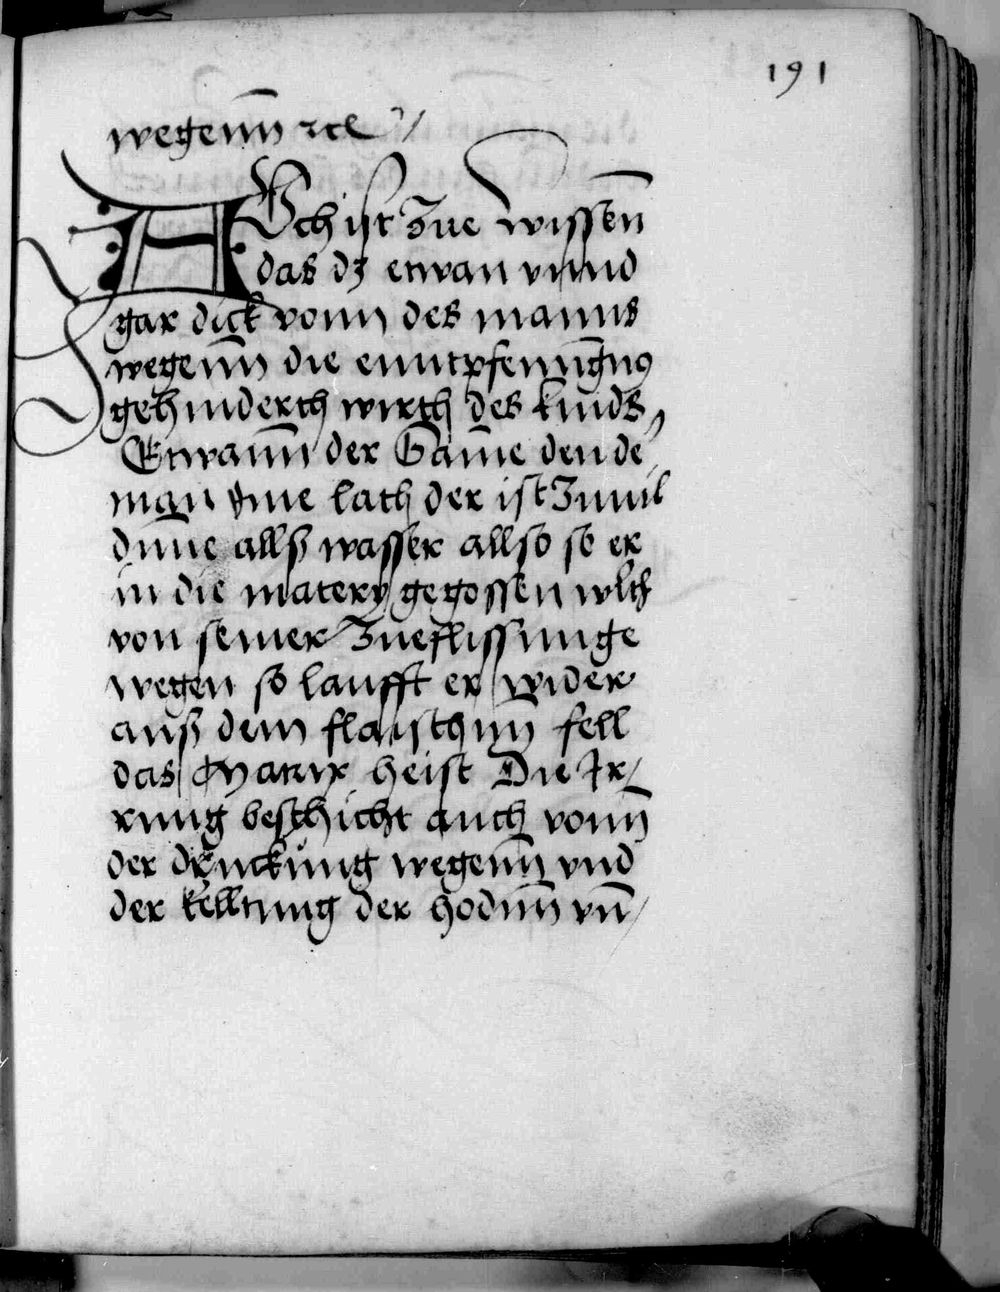 191
wegenn̄ ꝛcꝭ
AVch ist Zue wissen̄
das dz etwan vnnd
gar dick vonn des manns
wegen̄n die enntpfennḡnus
gehinderth wirth des kinds,
Etwan̄n der Sam̄e den de
man ... lath der ist Zuuil
dūnne allß wasser allso so er
in die matery gegossen wirth
von seiner Zueflissunge
wegen so laufft er wider
auß dem flaischinn fell
das Matrix heist Die Ir⸗
rung beschicht auch vonn̄
der druckung wegen̄n vnd
der kelltung der hodnn̄ vn̄